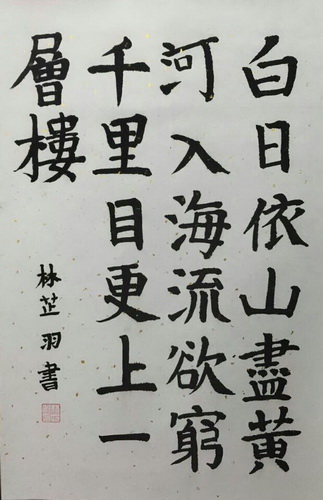 白日依山盡黃
河入海流欲窮
千里目更上一
層樓
林芷羽書